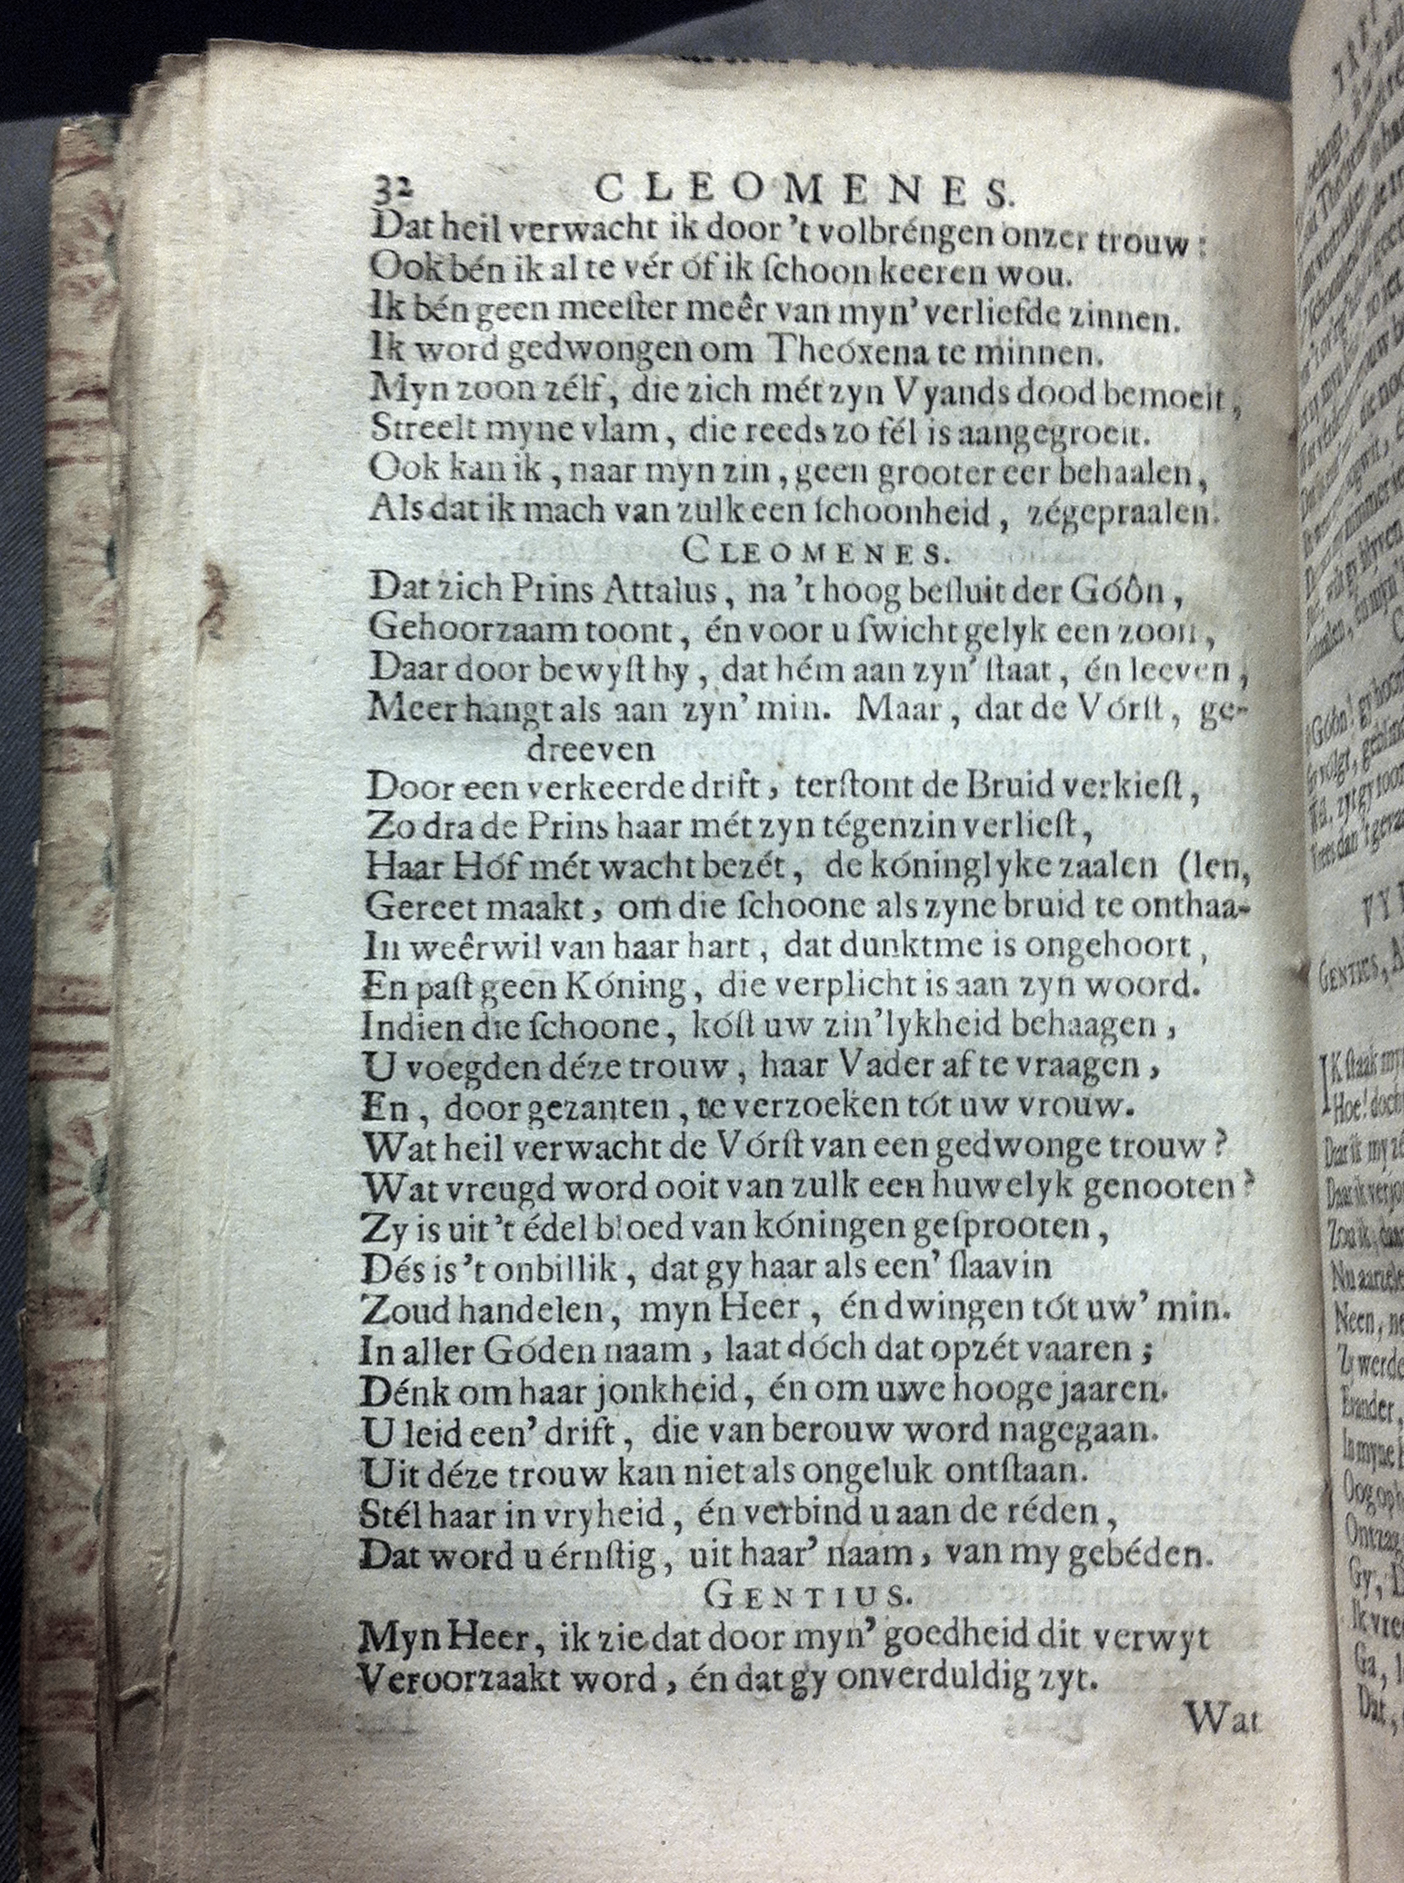 32 CLEOMENES.
Dat heil verwacht ik door 't volbréngen onzer trouw:
Ook bén ik al te vér óf ik ſchoon keeren wou.
Ik bén geen meeſter meêr van myn' verliefde zinnen.
Ik word gedwongen om Theóxena te minnen.
Myn zoon zélf, die zich mét zyn Vyands dood bemoeit,
Streelt myne vlam, die reeds zo fél is aangegroeit.
Ook kan ik, naar myn zin, geen grooter eer behaalen,
Als dat ik mach van zulk een ſchoonheid, zégepraalen.
CLEOMENES.
Dat zich Prins Attalus, na 't hoog beſluit der Góôn,
Gehoorzaam toont, én voor u ſwicht gelyk een zoon,
Daar door bewyſt hy, dat hém aan zyn' ſtaat, én leeven,
Meer hangt als aan zyn' min. Maar, dat de Vórſt, ge-
dreeven
Door een verkeerde drift, terſtont de Bruid verkieſt,
Zo dra de Prins haar mét zyn tégenzin verlieſt,
Haar Hóf mét wacht bezét, de kóninglyke zaalen (len,
Gereet maakt, om die ſchoone als zyne bruid te onthaa-
In weêrwil van haar hart, dat dunkt me is ongehoort,
En paſt geen Kóning, die verplicht is aan zyn woord.
Indien die ſchoone, kóſt uw zin'lykheid behaagen,
U voegden déze trouw, haar Vader af te vraagen,
En, door gezanten, te verzoeken tót uw vrouw.
Wat heil verwacht de Vórſt van een gedwonge trouw?
Wat vreugd word ooit van zulk een huwelyk genooten?
Zy is uit 't édel bloed van kóningen geſprooten,
Dés is 't onbillik, dat gy haar als een' ſlaavin
Zoud handelen, myn Heer, én dwingen tót uw' min.
In aller Góden naam, laat dóch dat opzét vaaren;
Dénk om haar jonkheid, én om uwe hooge jaaren.
U leid een' drift, die van berouw word nagegaan.
Uit déze trouw kan niet als ongeluk ontſtaan.
Stél haar in vryheid, én verbind u aan de réden,
Dat word u érnſtig, uit haar' naam, van my gebéden.
GENTIUS.
Myn Heer, ik zie dat door myn' goedheid dit verwyt
Veroorzaakt word, én dat gy onverduldig zyt.
Wat